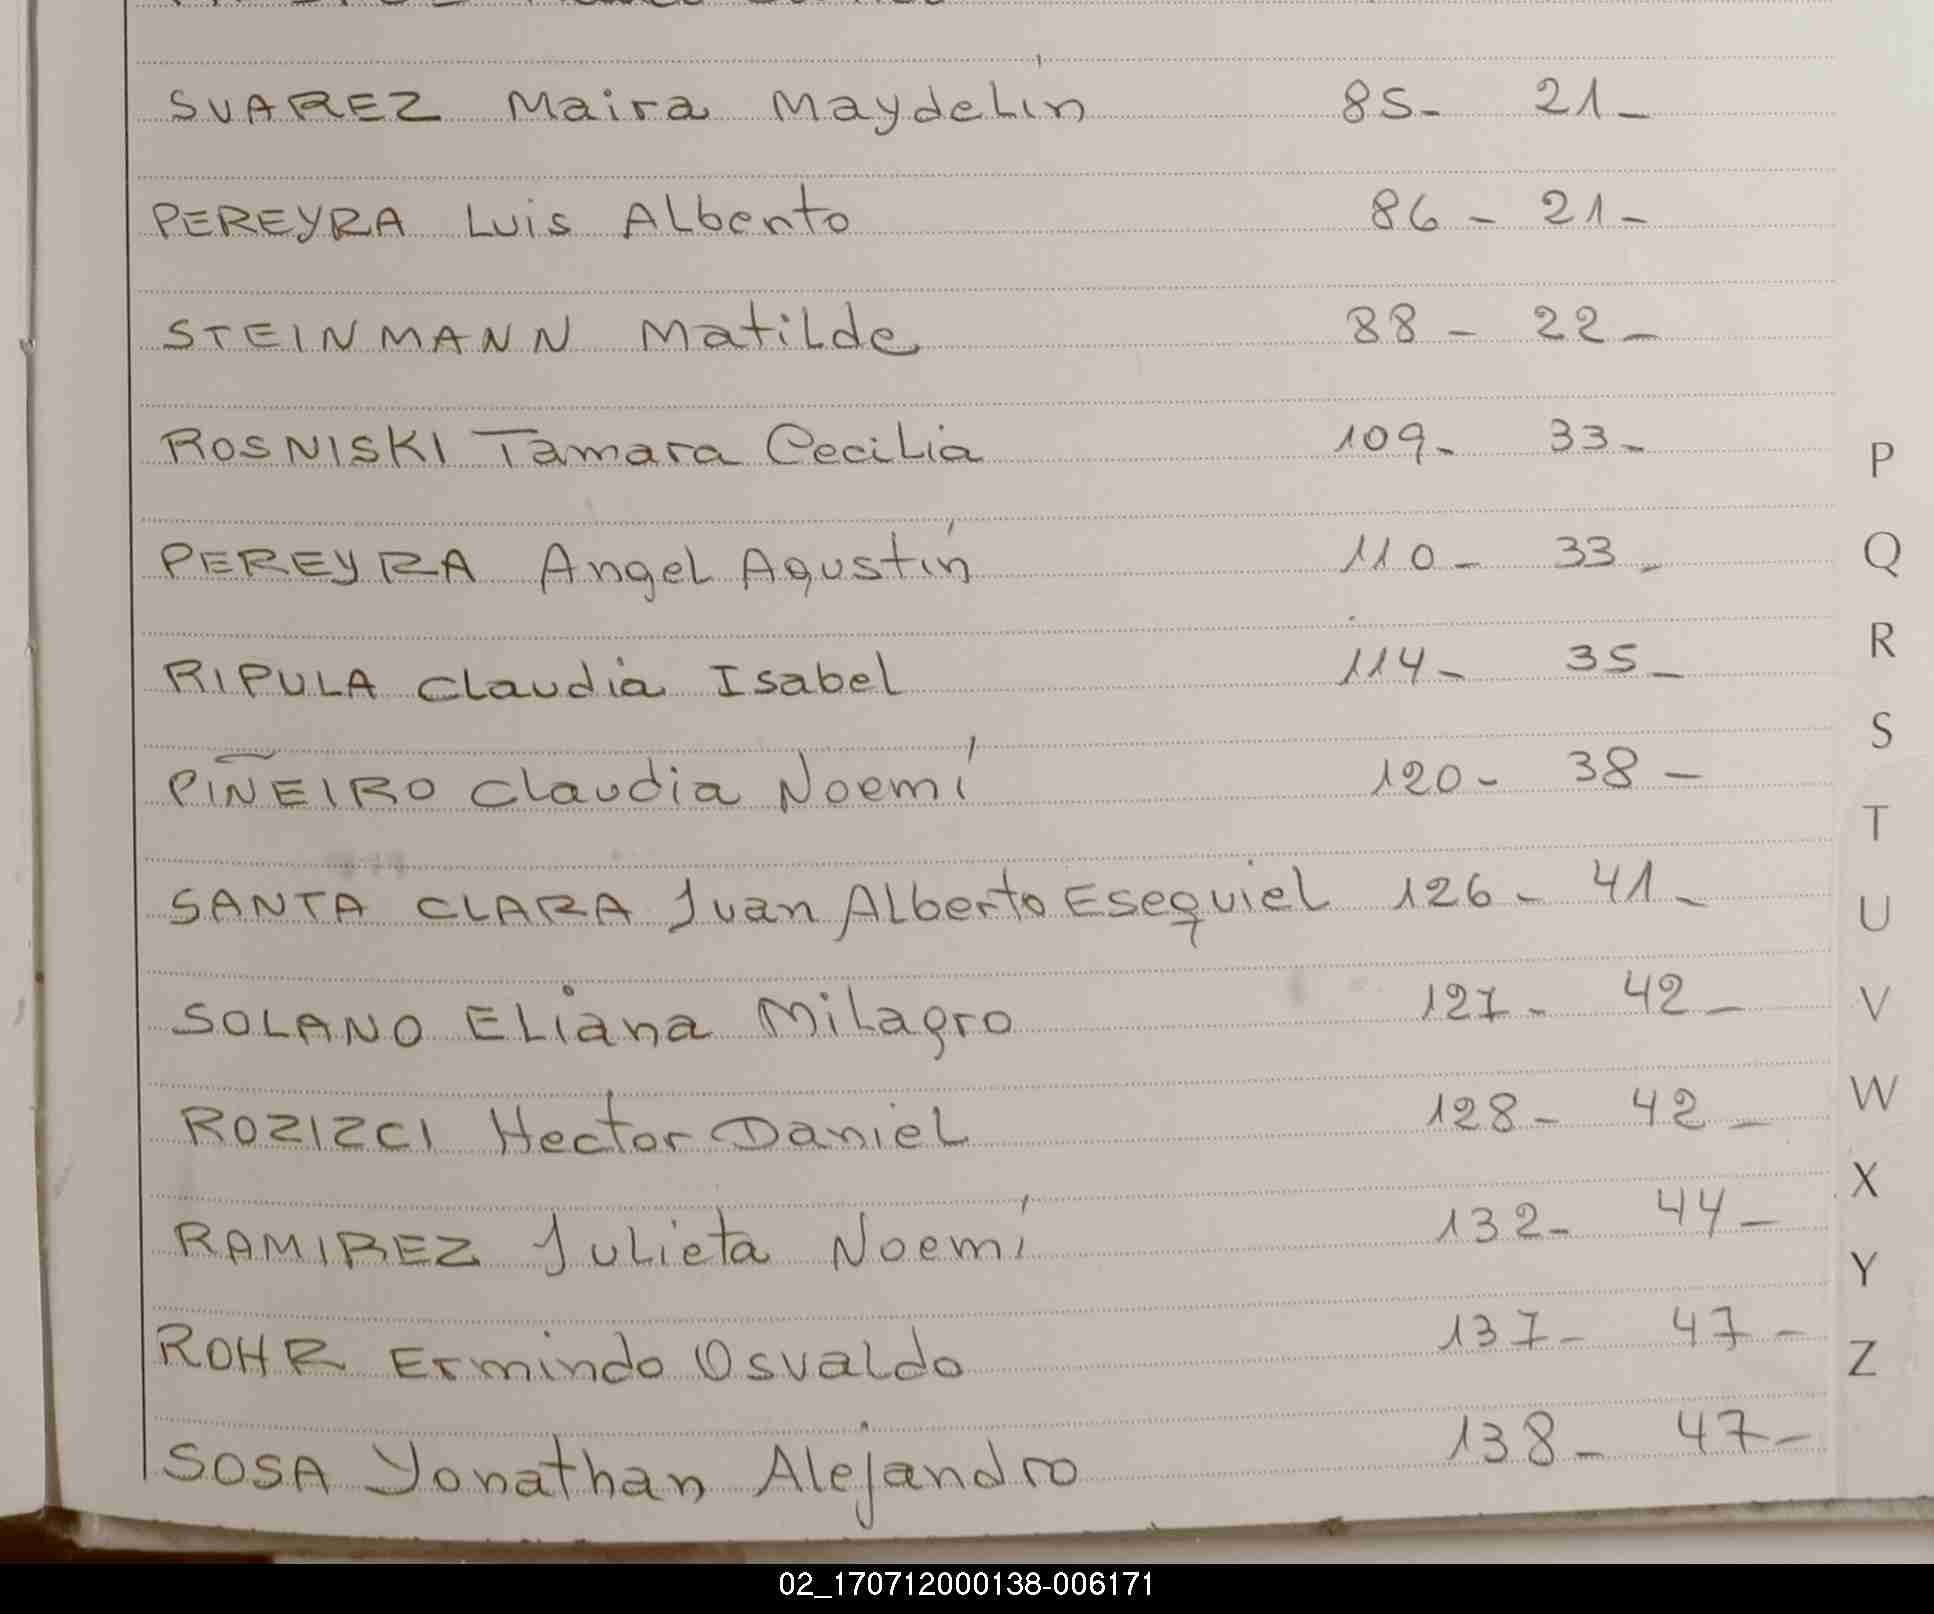 SUAREZ Maira Maydelín 85- 21-
PEREYRA Luis Alberto 86- 21-
STEINMANN Matilde 88- 22-
ROSNISKI Tamara Cecilia 109- 33-
PEREYRA Angel Agustín 110- 33-
RIPULA Claudia Isabel 114- 35-
PIÑEIRO Claudia Noemí 120- 38-
SANTA CLARA Juan Alberto Esequiel 126- 41-
SOLANO Eliana Milagro 127- 42-
ROZIZCI Hector Daniel 128- 42-
RAMIREZ Julieta Noemí 132- 44-
ROHR Ermindo Osvaldo 137- 47-
SOSA Yonathan Alejandro 138- 47-
P
Q
R
S
T
U
V
W
X
Y
Z
02_170712000138-006171